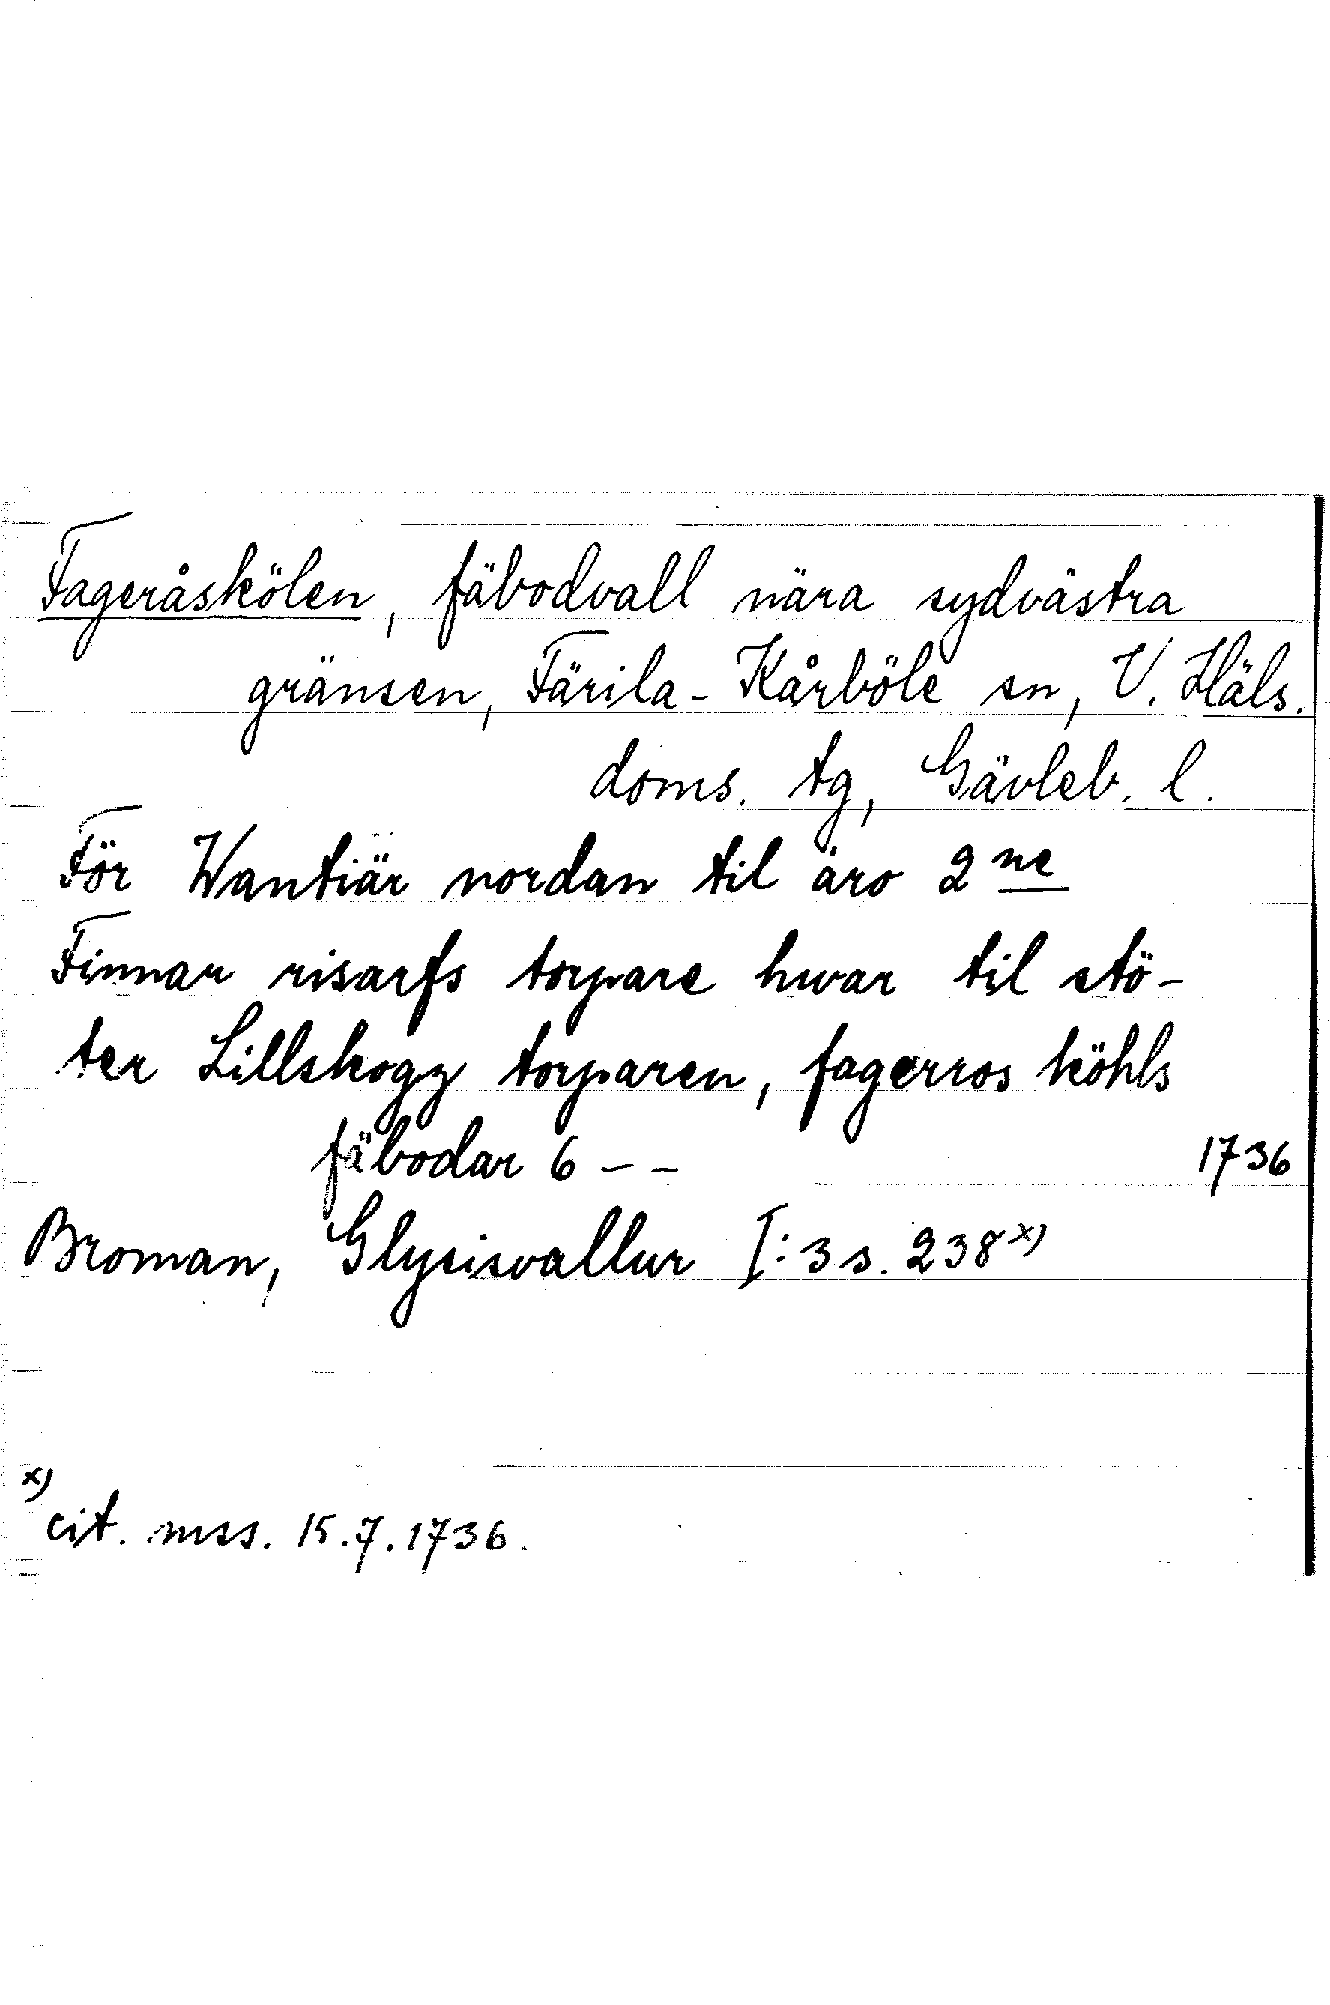 Fageråskölen, fäbodvall nära sydvästra
gränsen, Färila-Kårböle sn, V. Häls.
doms. tg, Gävleb. l.
För Wantiär nordan til äro 2ne
Finnar risarfs torpare hwar til stö-
ter Lillskogz torparen, fagerros köhls
fäbodar 6 – – 1736
Broman, Glysisvallur I:3 s. 238x)
x) cit. mss. 15.7.1736.